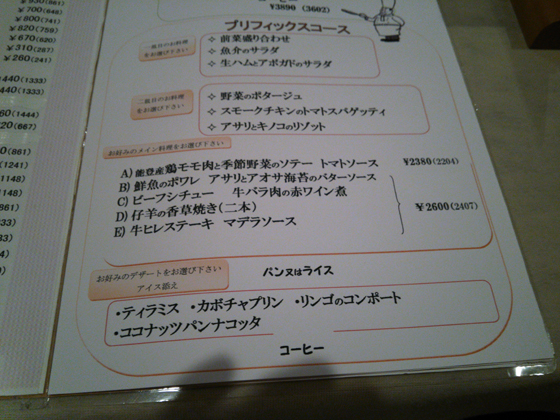 ¥930(861)
¥700(648)
¥800(741)
¥820(759)
¥670(620)
¥310(287)
¥260(241)
440(1333)
440(1333)
¥3890 (3602)
プリフィックスコース
一皿目のお料理
をお選び下さい
✧ 前菜盛り合わせ
✧ 魚介のサラダ
✧ 生ハムとアボガドのサラダ
二皿目のお料理
をお選び下さい
✧ 野菜のポタージュ
✧ スモークチキンのトマトスパゲッティ
✧ アサリとキノコのリゾット
お好みのメイン料理をお選び下さい
A) 能登産鶏モモ肉と季節野菜のソテー トマトソース ¥2380(2204)
B) 鮮魚のポワレ アサリとアオサ海苔のバターソース
C) ビーフシチュー 牛バラ肉の赤ワイン煮
D) 仔羊の香草焼き(二本)
E) 牛ヒレステーキ マデラソース
¥2600(2407)
お好みのデザートをお選び下さい
アイス添え
パン又はライス
・ティラミス ・カボチャプリン ・リンゴのコンポート
・ココナッツパンナコッタ
コーヒー